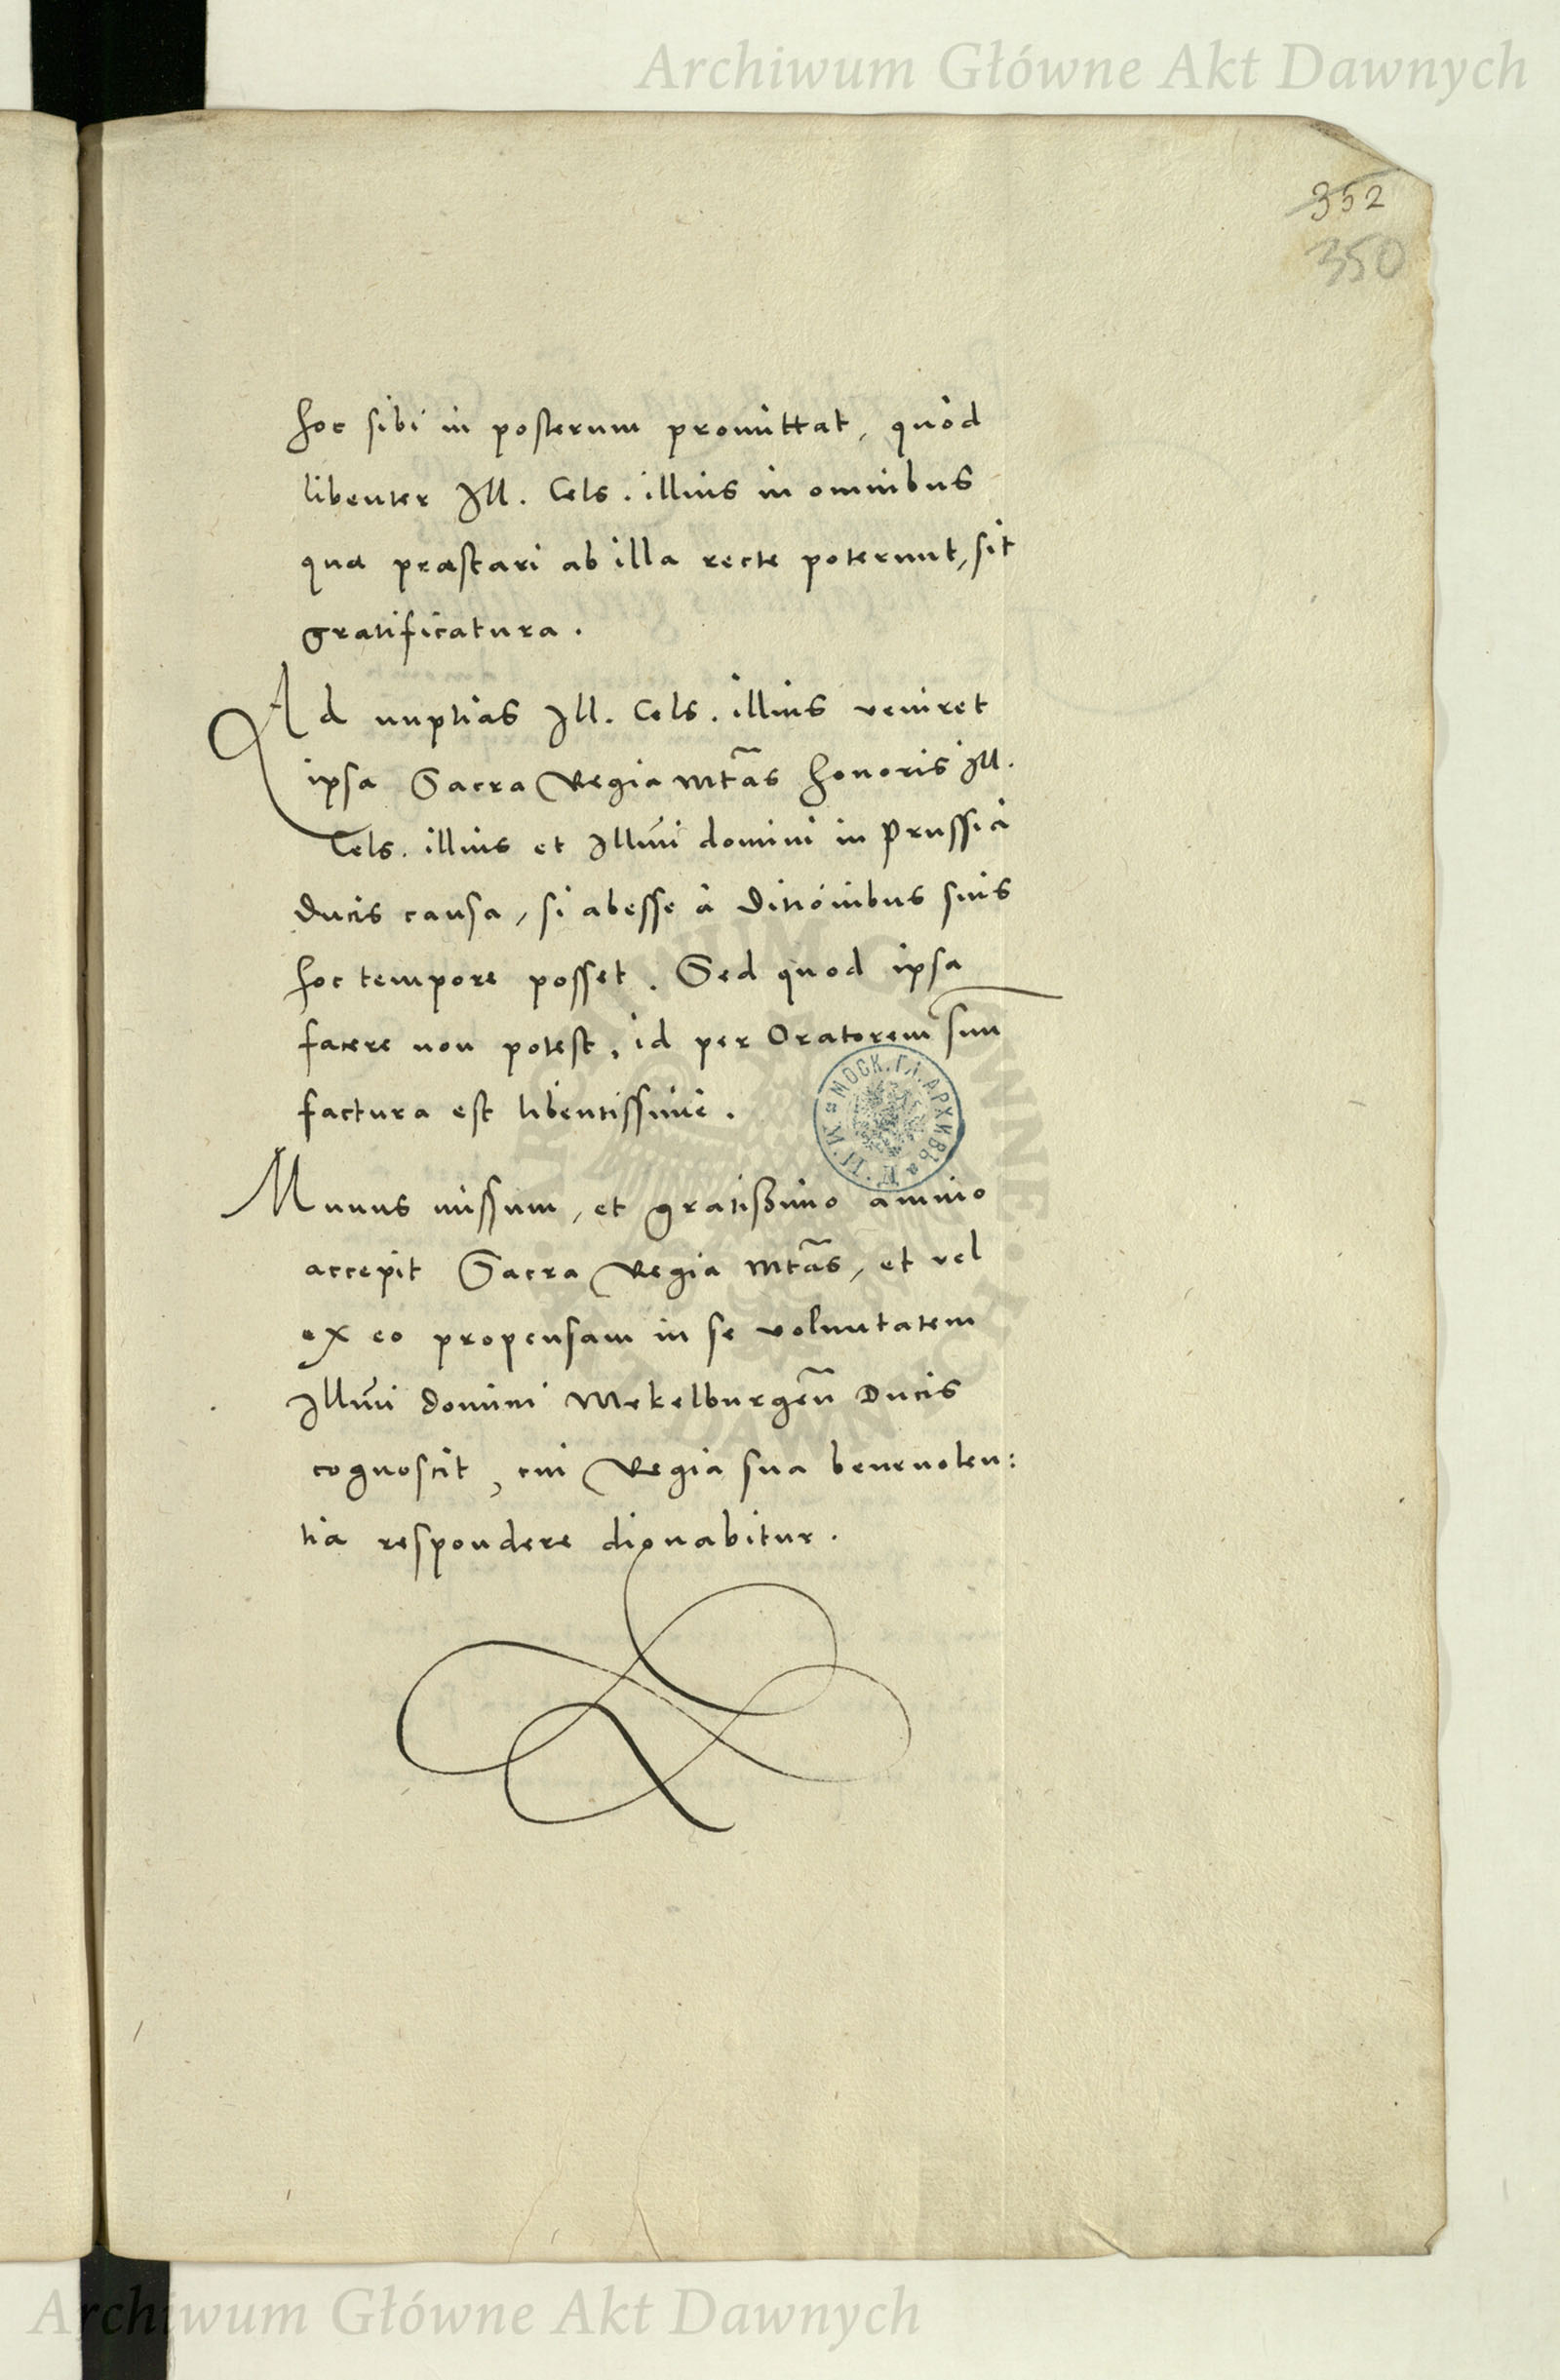 Archiwum Główne Akt Dawnych
352
350
hoc sibi in posterum promittat, quòd
libenter Ill. Cels. illius in omnibus
quæ præstari ab illa recte poterunt, sit
gratificatura.
Ad nuptias Ill. Cels. illius veniret
ipsa Sacra Regia Mtãs honoris Ill.
Cels. illius et Illmi domini in Prussia
Ducis causa, si abesse à Ditionibus suis
hoc tempore posset. Sed quod ipsa
facere non potest, id per Oratorem suu
factura est libentissime.
Munus missum, et gratißimo animo
accepit Sacra Regia Mtãs, et vel
ex eo propensam in se voluntatem
Illmi domini Mekelburgeñ Ducis
cognoscit, cui Regia sua beneuolen:
tia respondere dignabitur.
МОСК. ГЛ. АРХИВЪ
ARCHIWUM GŁÓWNE AKT DAWNYCH
Archiwum Główne Akt Dawnych